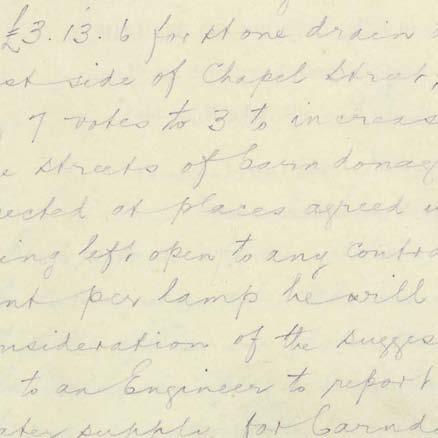 £3.13.6 for stone drain
st side of Chapel Street,
7 votes to 3 to increas
e streets of Carndonag
ected at places agreed u
ing left open to any contra
nt per lamp he will
nsideration of the sugges
to an Engineer to report
ater supply for Carnd